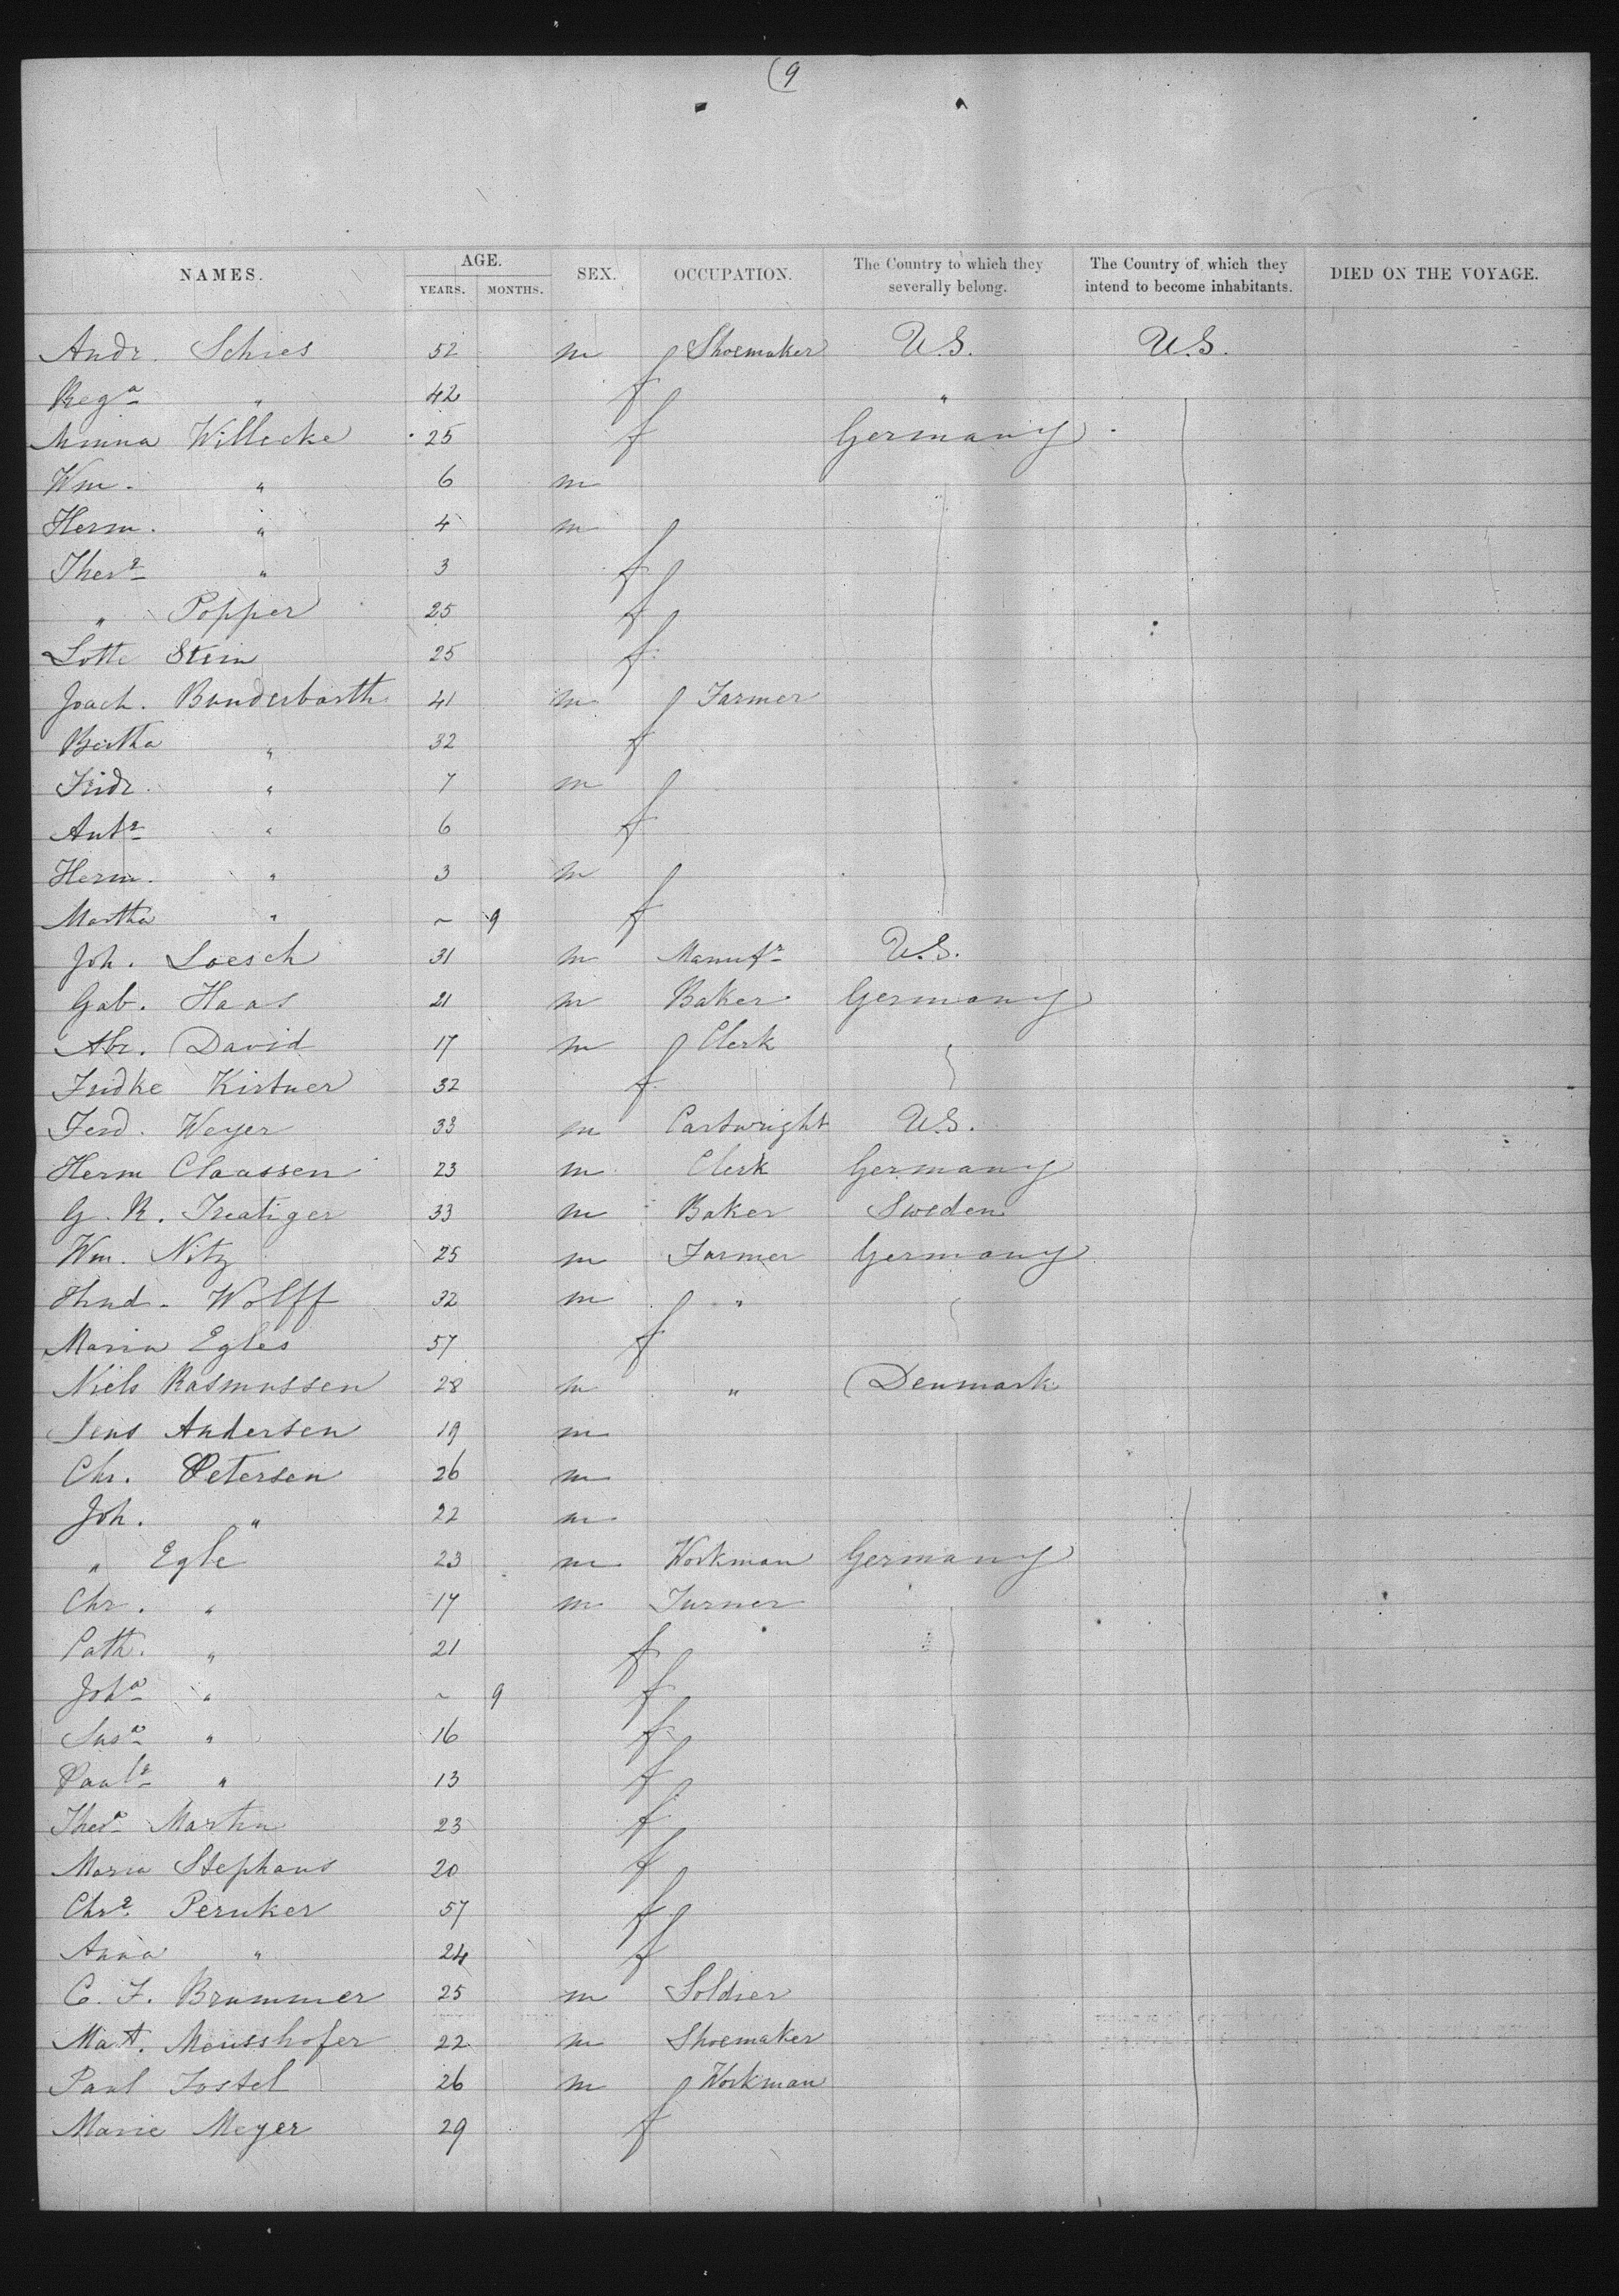 (9
NAMES. AGE. YEARS. MONTHS. SEX. OCCUPATION. The Country to which they severally belong. The Country of which they intend to become inhabitants. DIED ON THE VOYAGE.
Andr. Schies 52 m Shoemaker U.S. U.S.
Rega " 42 f "
Minna Willecke 25 f Germany
Wm. " 6 m
Herm. " 4 m
There " 3 f
" Popper 25 f
Lotte Stein 25 f
Joach. Bunderbarth 41 m Farmer
Bertha " 32 f
Fridr. " 7 m
Ante " 6 f
Herm. " 3 m
Martha " ~ 9 f
Joh. Loesch 31 m Manufr U.S.
Gab. Haas 21 m Baker Germany
Abr. David 17 m Clerk
Fridke Kirtner 32 f
Ferd. Weyer 33 m Cartwright U.S.
Herm Claassen 23 m Clerk Germany
G. R. Treatiger 33 m Baker Sweden
Wm. Nitz 25 m Farmer Germany
Wolff 32 m "
Maria Egles 57 f
Niels Rasmussen 28 m " Denmark
Jens Andersen 19 m
Chr. Petersen 26 m
Joh. " 22 m
" Egle 23 m Workman Germany
Chr. " 17 m Turner
Cath. " 21 f
Joha " ~ 9 f
Susa " 16 f
Paule " 13 f
Martin 23 f
Maria Stephans 20 f
Chre Peruker 57 f
Anna " 24 f
C. F. Brummer 25 m Soldier
Mat. Meusshofer 22 m Shoemaker
Paul Jostel 26 m Workman
Marie Meyer 29 f